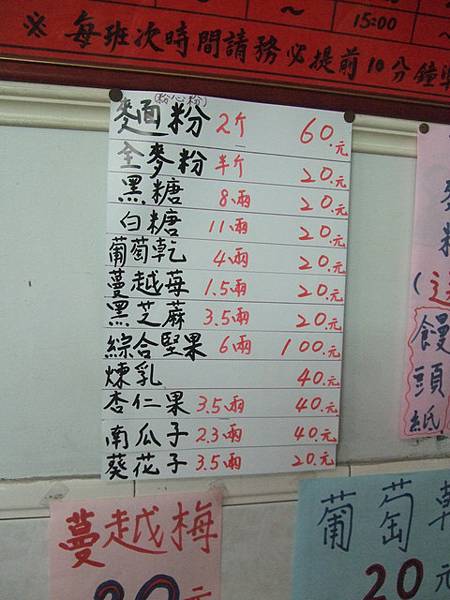 ～ ～ 15:00 ～
※ 每班次時間請務必提前10分鐘
(粉心粉)
麵粉 2斤 60.元
全麥粉 半斤 20.元
黑糖 8.兩 20.元
白糖 11.兩 20.元
葡萄乾 4.兩 20.元
蔓越莓 1.5兩 20.元
黑芝麻 3.5兩 20.元
綜合堅果 6兩 100.元
煉乳 40.元
杏仁果 3.5兩 40.元
南瓜子 2.3兩 40.元
葵花子 3.5兩 20.元
饅
頭
紙
蔓越梅
20元
葡萄乾
20元